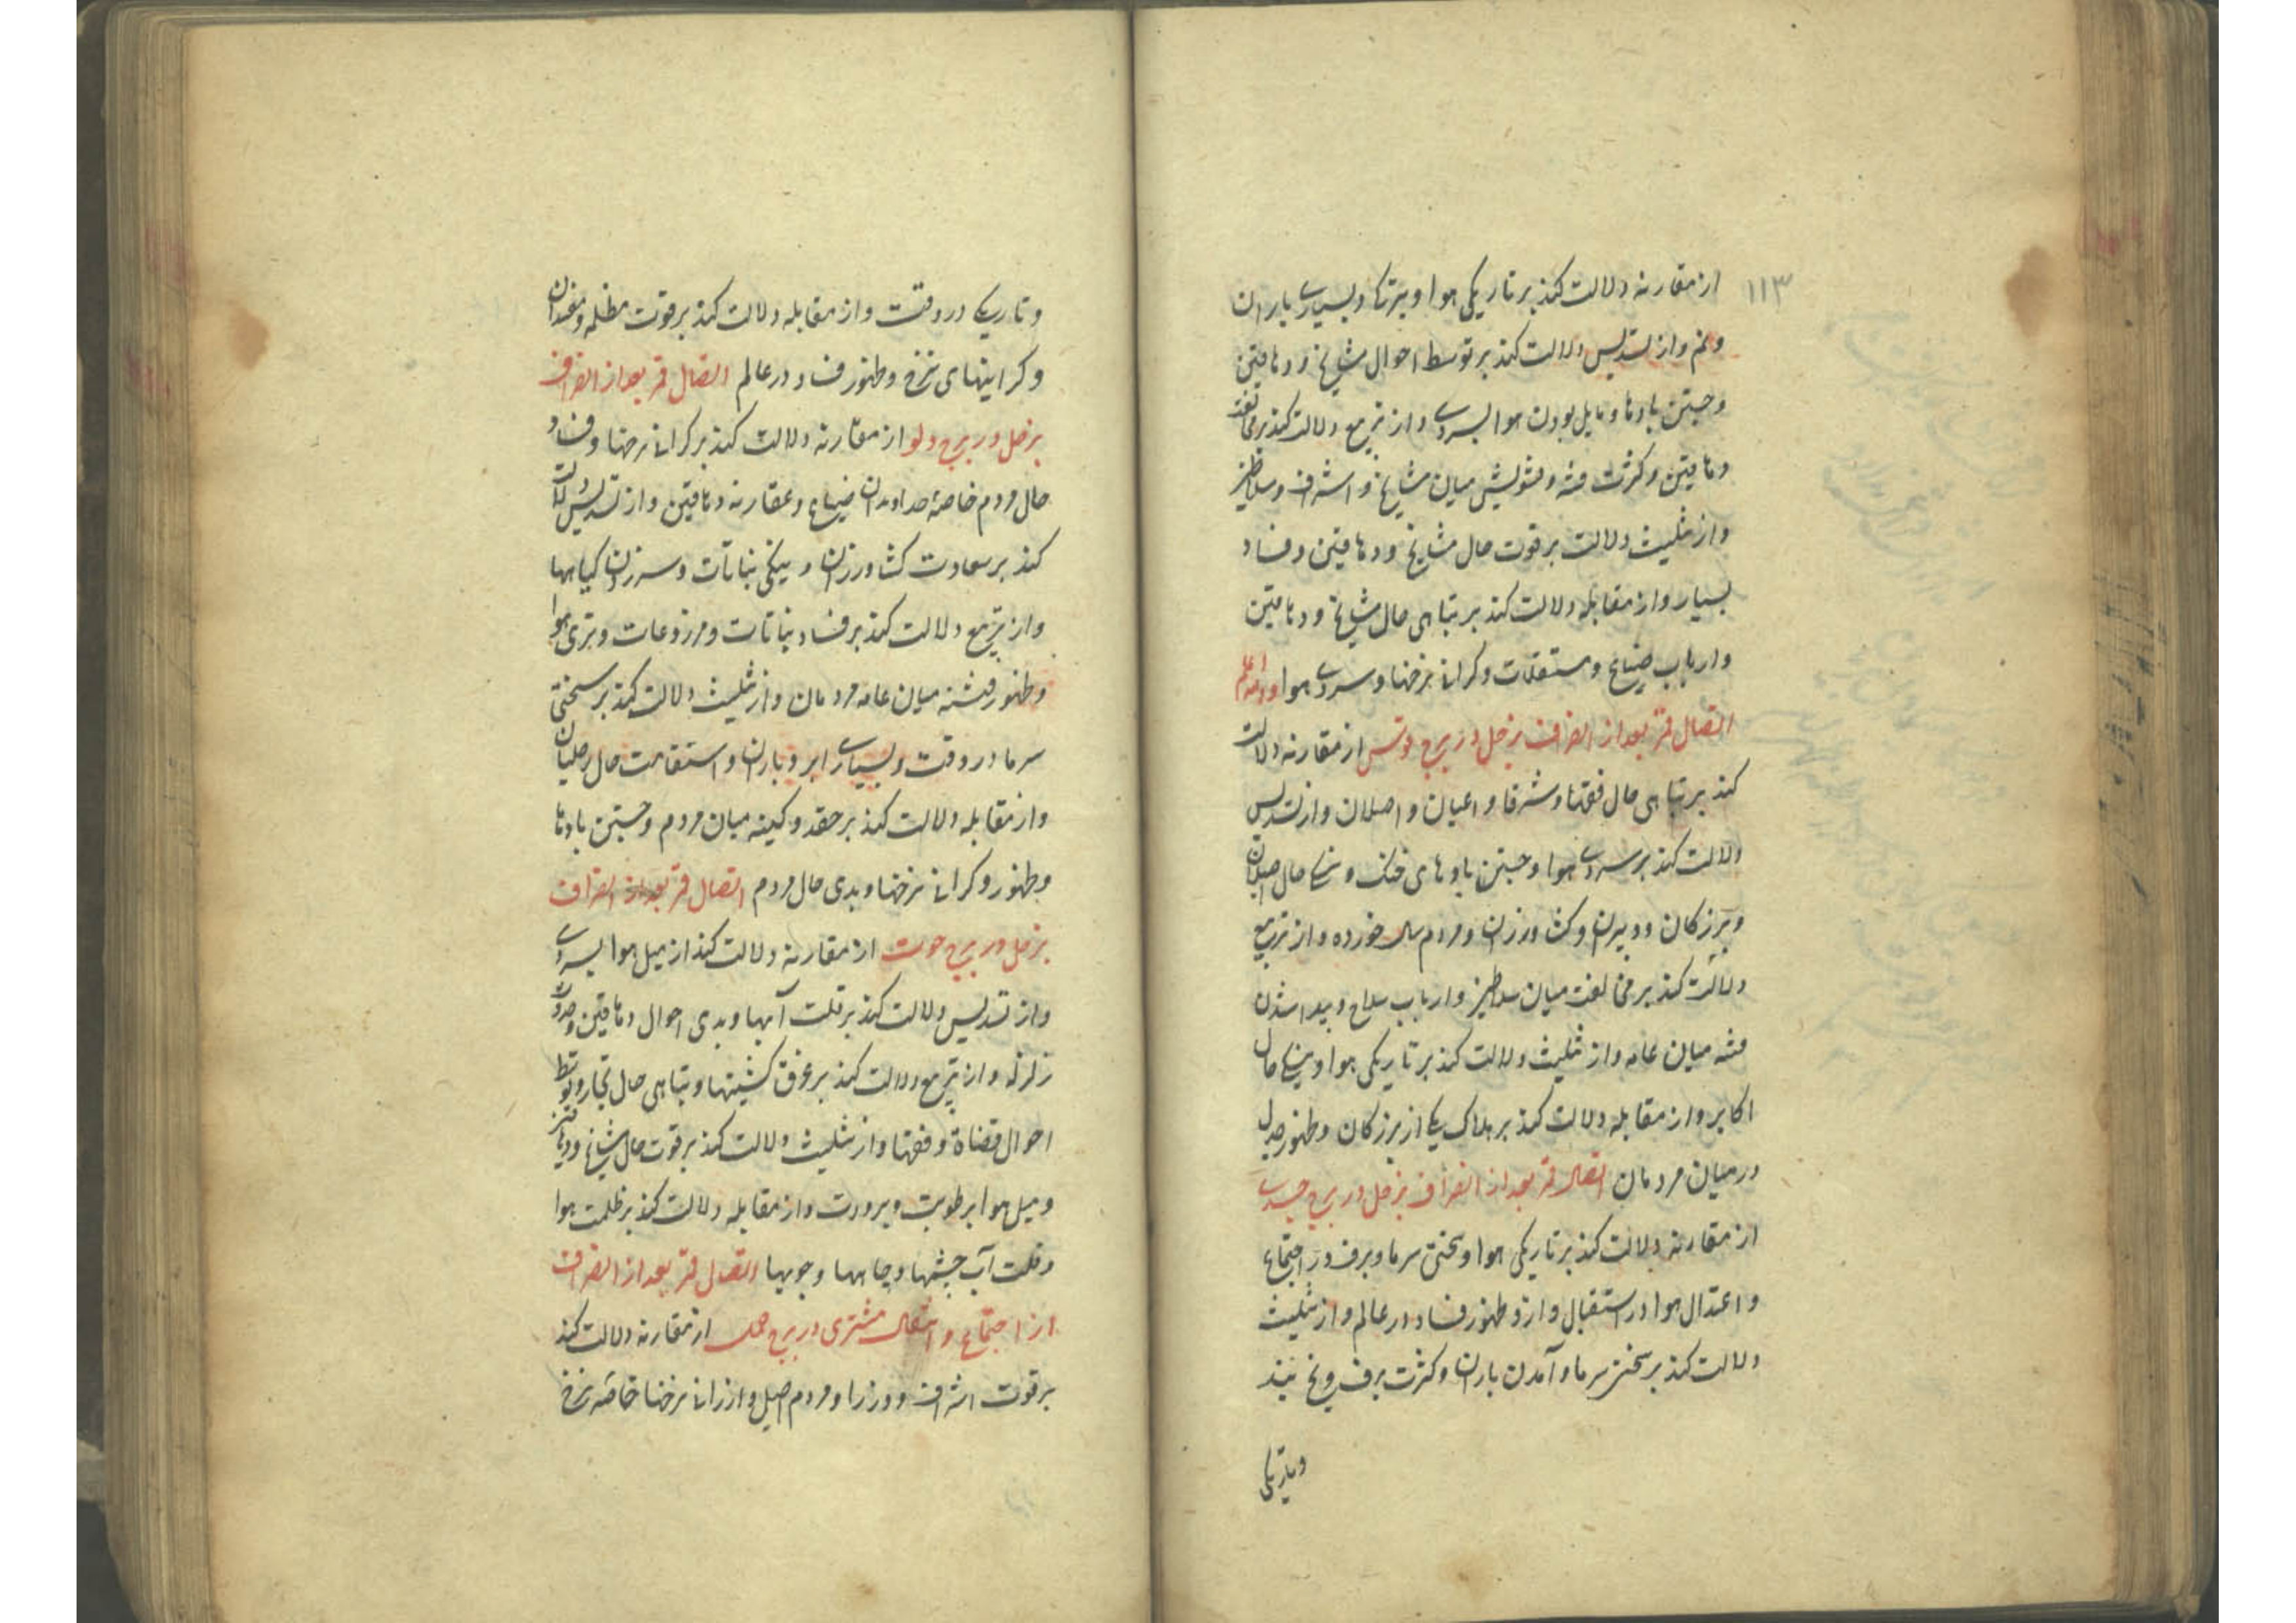 ۱۱۳
از مقارنه دلالت کند بر تاریکی هوا و تیرگی و بسیاری باران
و نم و از تسدیس دلالت کند بر توسط احوال مشایخ و دهاقین
و جستن بادها و مایل بودن هوا بسردی و از تربیع دلالت کند بر مخالفت
دهاقین و کثرت فتنه و تشویش میان مشایخ و اشراف و سلاطین
و از تثلیث دلالت بر قوت حال مشایخ و دهاقین و فساد
بسیار و از مقابله دلالت کند بر تباهی حال مشایخ و دهاقین
و ارباب ضیاع و مستغلات و گرانی نرخها و سردی هوا والله اعلم
اتصال قمر بعد از انصراف بزحل در برج قوس از مقارنه دلالت
کند بر تباهی حال فقها و شرفا و اعیان و اصلان و از تسدیس
دلالت کند بر سردی هوا و جستن بادهای خنک و نیکی حال اصیلان
و بزرگان و دبیران و کشاورزان و مردم سال خورده و از تربیع
دلالت کند بر مخالفت میان سلاطین و ارباب سلاح و پیدا شدن
فتنه میان عامه و از تثلیث دلالت کند بر تاریکی هوا و نیکی حال
اکابر و از مقابله دلالت کند بر هلاک یکی از بزرگان و ظهور جدل
در میان مردمان اتصال قمر بعد از انصراف بزحل در برج جدی
از مقارنه دلالت کند بر تاریکی هوا و سختی سرما و برف در اجتماع
و اعتدال هوا در استقبال و از و ظهور فساد در عالم و از تثلیث
دلالت کند بر سختی سرما و آمدن باران و کثرت برف و یخ بند
و تاریکی
و تاریکی در وقت و از مقابله دلالت کند بر قوت مظلمه و مفسدان
و گرانیهای نرخ و ظهور فساد در عالم اتصال قمر بعد از انصراف
بزحل در برج دلو از مقارنه دلالت کند بر گرانی نرخها و فساد
حال مردم خاصه خداوندان ضیاع و عقارنه دهاقین و از تسدیس دلالت
کند بر سعادت کشاورزان و نیکی نباتات و سر زدن گیاهها
و از تربیع دلالت کند بر فساد نباتات و مزروعات و تری هوا
و ظهور فتنه میان عامه مردمان و از تثلیث دلالت کند بر سختی
سرما در وقت و بسیاری ابر و باران و استقامت حال اصلیان
و از مقابله دلالت کند بر حقد و کینه میان مردم و جستن بادها
و ظهور و گرانی نرخها و بدی حال مردم اتصال قمر بعد از انصراف
بزحل در برج حوت از مقارنه دلالت کند از میل هوا بسردی
و از تسدیس دلالت کند بر قلت آبها و بدی احوال دهاقین و حدوث
زلزله و از تربیع دلالت کند بر غرق کشتیها و تباهی حال تجار و توسط
احوال قضاة و فقها و از تثلیث دلالت کند بر قوت حال مشایخ و دهاقین
و میل هوا برطوبت و برودت و از مقابله دلالت کند بر ظلمت هوا
و قلت آب چشمها و چاهها و جویها اتصال قمر بعد از انصراف
از اجتماع و اتصال مشتری در برج حمل از مقارنه دلالت کند
بر قوت اشراف و وزرا و مردم اصیل و ارزانی نرخها خاصه نرخ